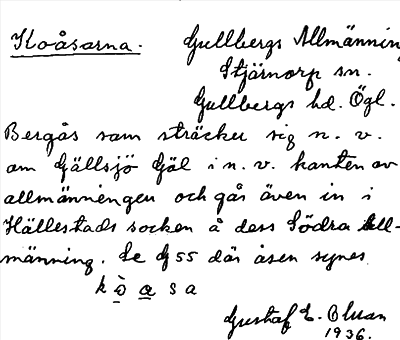 Koåsarna. Gullbergs Allmänning
Stjärnorp sn.
Gullbergs hd. Ögl.
Bergås som sträcker sig n. v.
om Gällsjö Göl i n. v. kanten av
allmänningen och går även in i
Hällestads socken å dess Södra All-
männing. Se G 55 där åsen synes.
k ò a s a
Gustaf E. Bluan
1936.